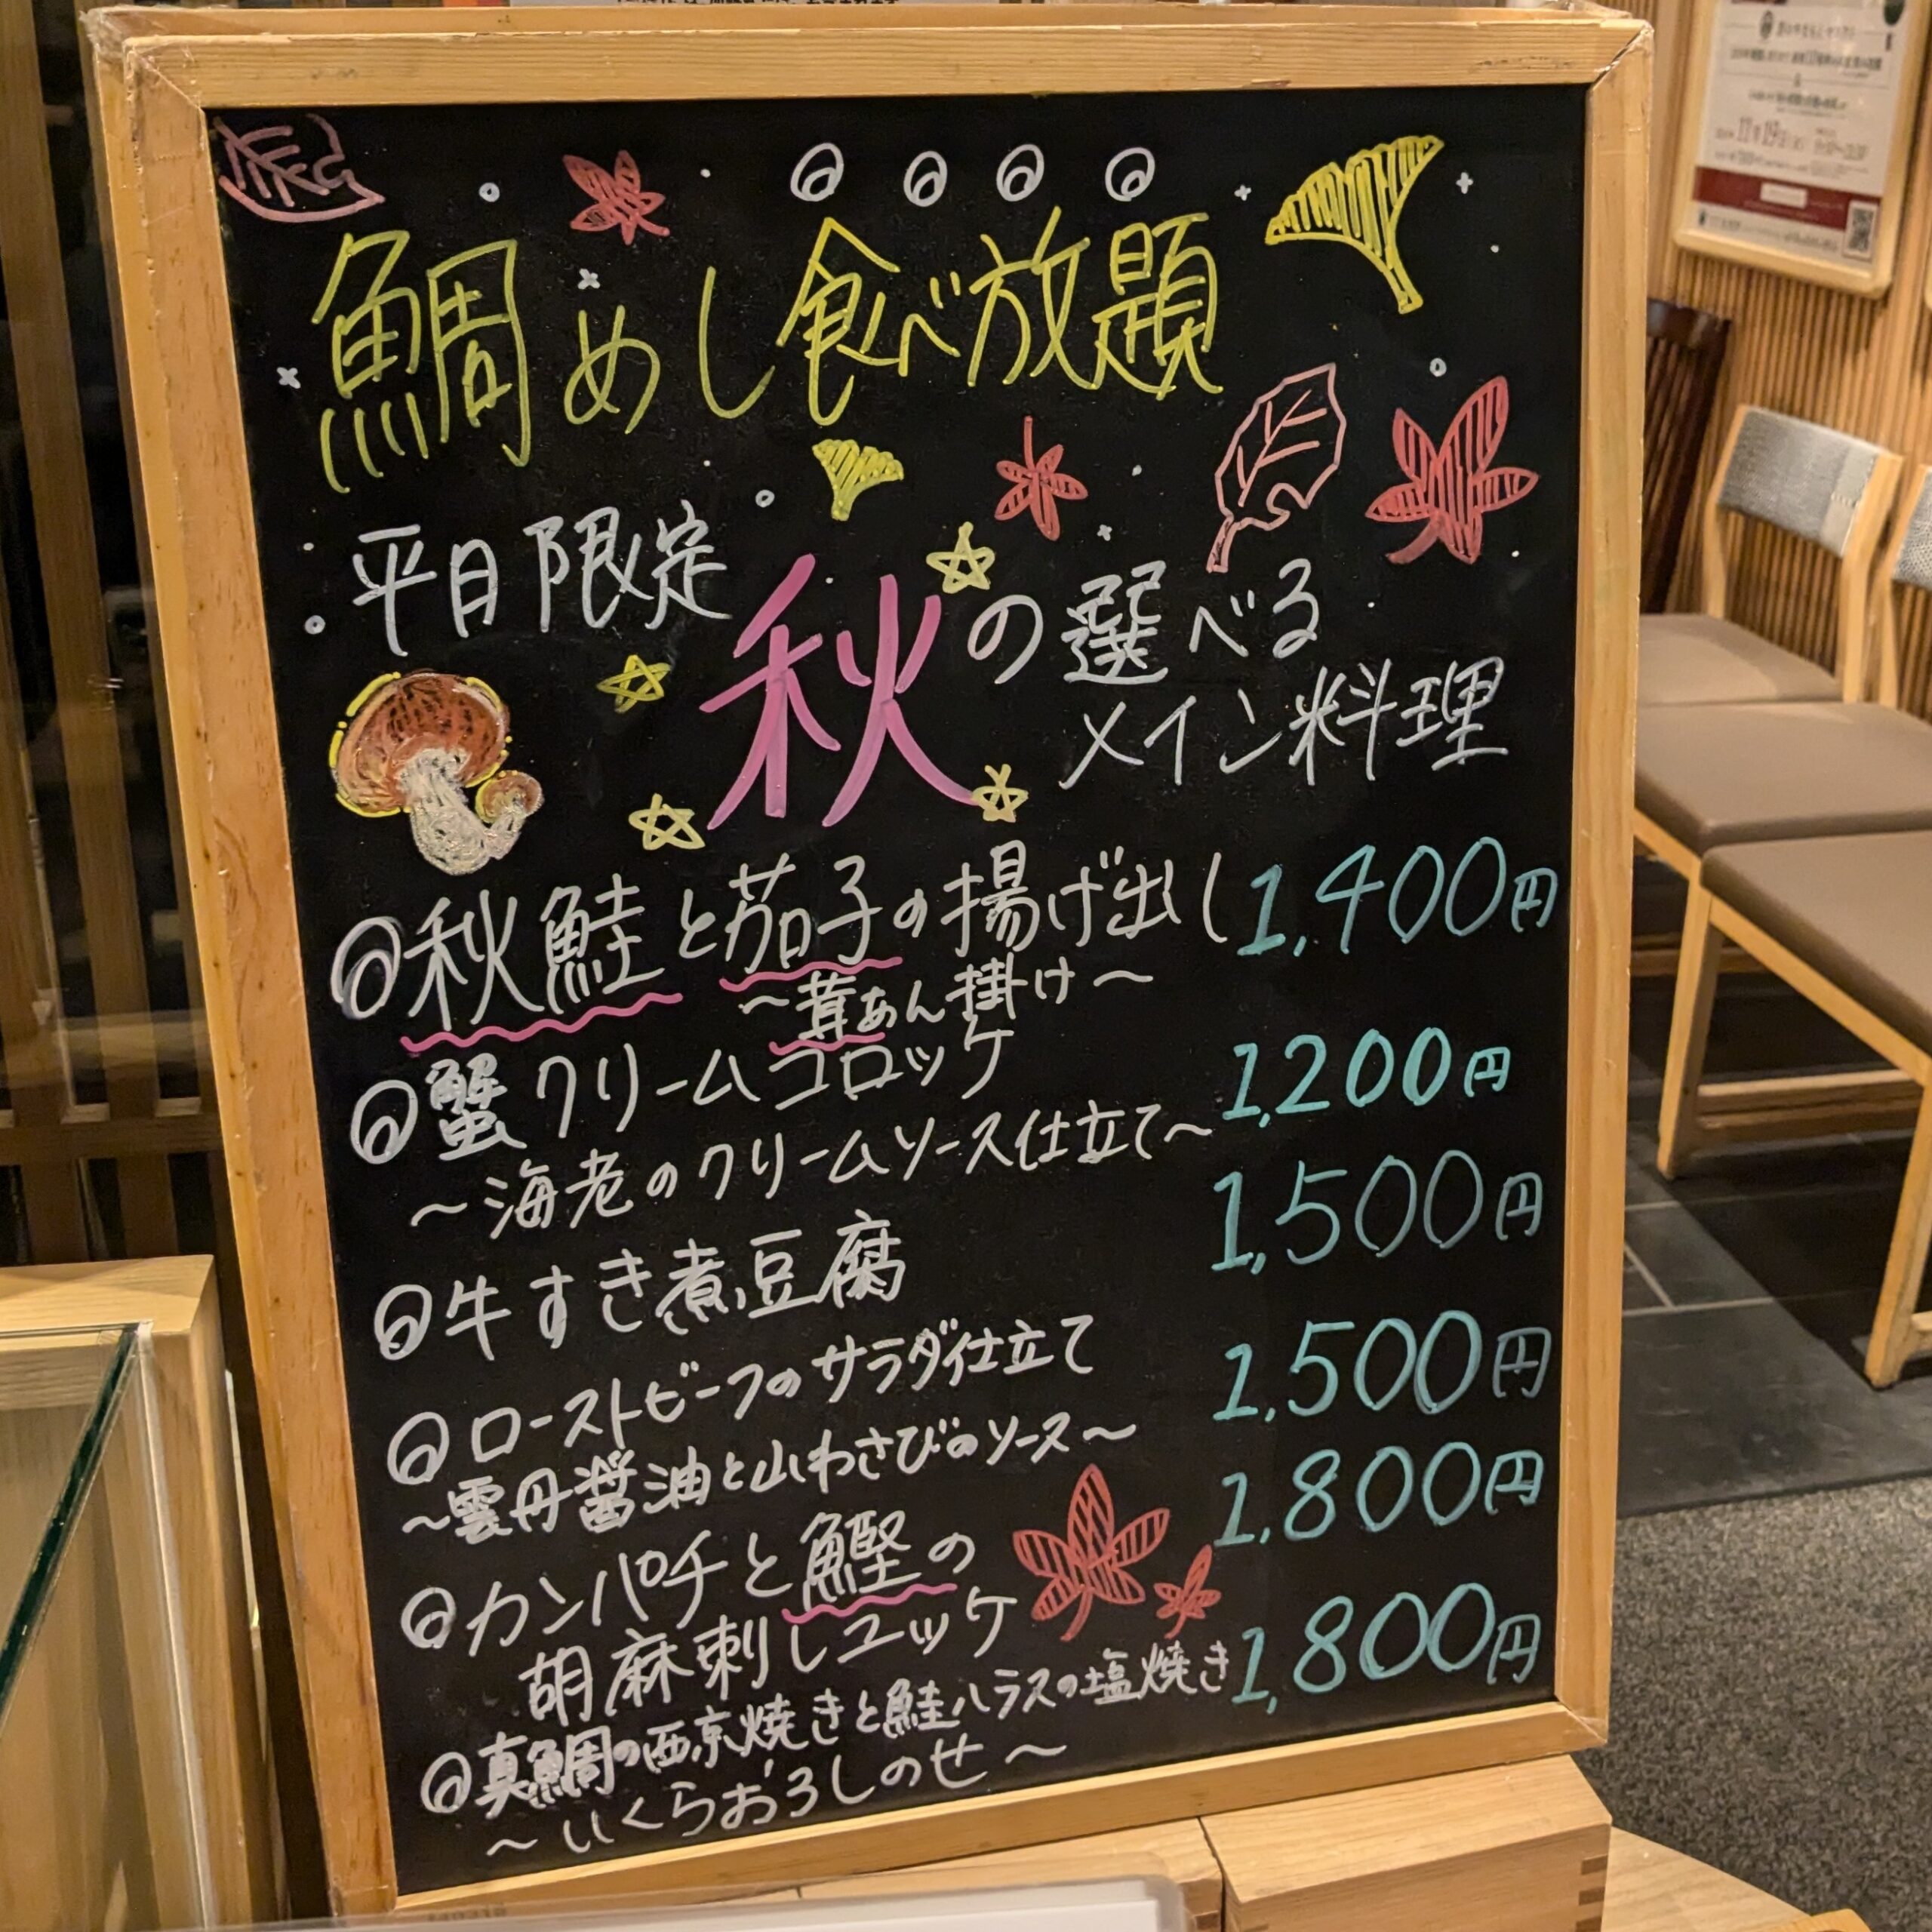 鯛めし食べ放題
平日限定
秋の選べる
メイン料理
秋鮭と茄子の揚げ出し 1,400円
～茸あん掛け～
蟹クリームコロッケ 1,200円
～海老のクリームソース仕立て～
牛すき煮豆腐 1,500円
ローストビーフのサラダ仕立て 1,500円
～雲丹醤油と山わさびのソース～
カンパチと鰹の 1,800円
胡麻刺しユッケ
真鯛の西京焼きと鮭ハラスの塩焼き 1,800円
～いくらおろしのせ～
11月19日